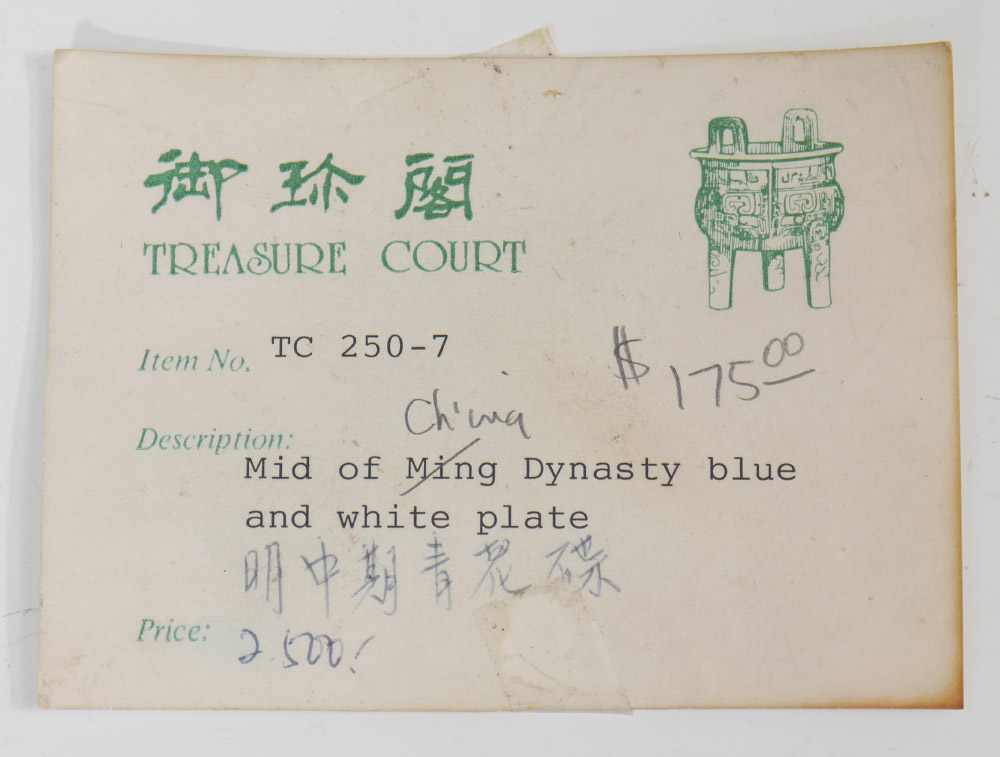 御珎閣
TREASURE COURT
Item No. TC 250-7
$ 175.00
China
Description:
Mid of Ming Dynasty blue
and white plate
明中期青花碟
Price: 2500!